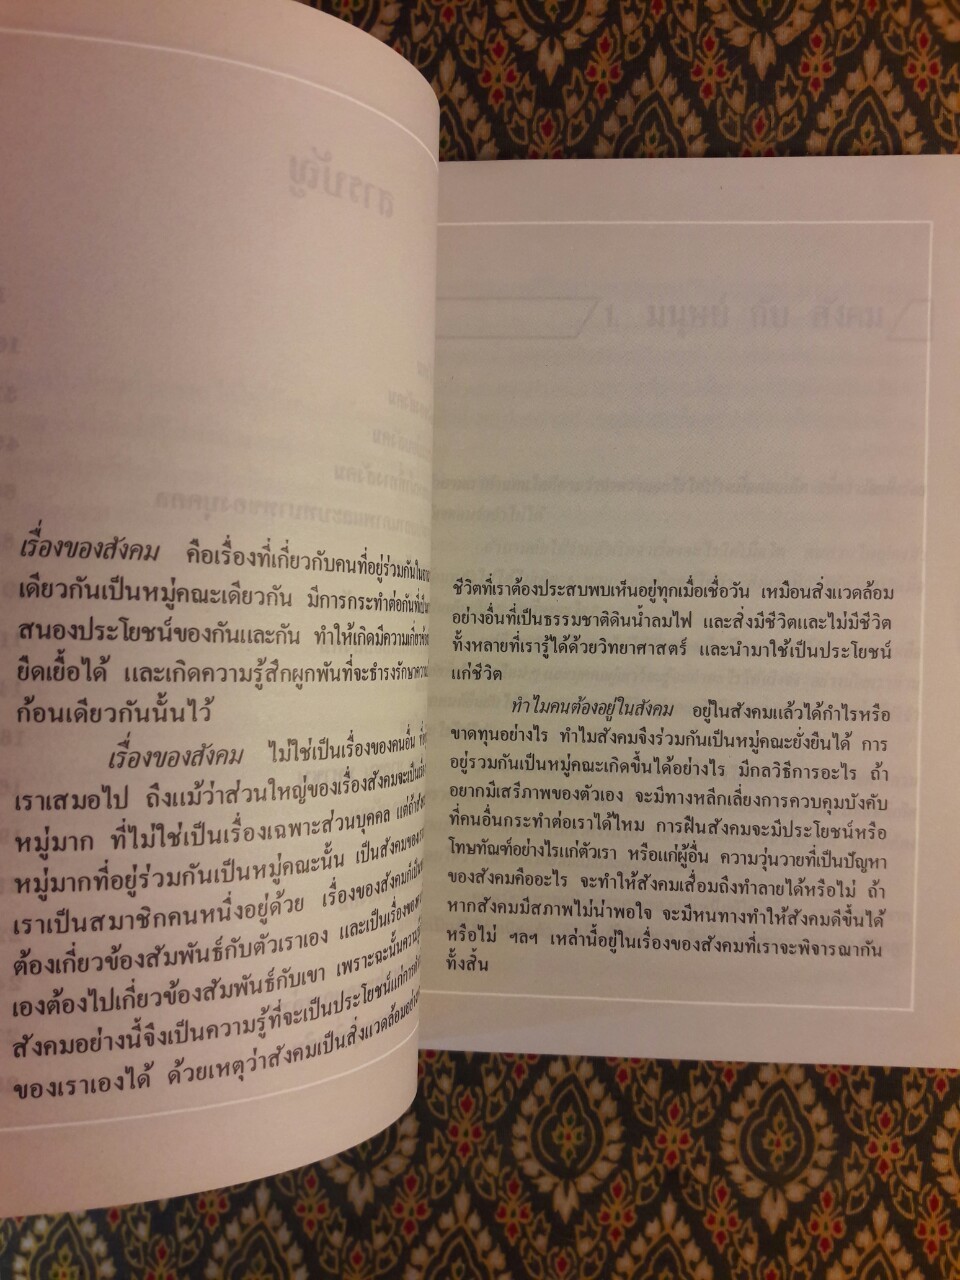 เรื่องของสังคม คือเรื่องที่เกี่ยวกับคนที่อยู่ร่วมกันใน
เดียวกันเป็นหมู่คณะเดียวกัน มีการกระทำต่อกันที่เป็น
สนองประโยชน์ของกันและกัน ทำให้เกิดมีความเกี่ยวข้อง
ยืดเยื้อได้ และเกิดความรู้สึกผูกพันที่จะธำรงรักษาความ
ก้อนเดียวกันนั้นไว้
เรื่องของสังคม ไม่ใช่เป็นเรื่องของคนอื่น
เราเสมอไป ถึงแม้ว่าส่วนใหญ่ของเรื่องสังคมจะเป็น
หมู่มาก ที่ไม่ใช่เป็นเรื่องเฉพาะส่วนบุคคล
หมู่มากที่อยู่ร่วมกันเป็นหมู่คณะนั้น เป็นสังคมของ
เราเป็นสมาชิกคนหนึ่งอยู่ด้วย เรื่องของสังคมก็
ต้องเกี่ยวข้องสัมพันธ์กับตัวเราเอง และเป็นเรื่องของ
เองต้องไปเกี่ยวข้องสัมพันธ์กับเขา เพราะฉะนั้นความรู้
สังคมอย่างนี้จึงเป็นความรู้ที่จะเป็นประโยชน์แก่การ
ของเราเองได้ ด้วยเหตุว่าสังคมเป็นสิ่งแวดล้อม
ชีวิตที่เราต้องประสบพบเห็นอยู่ทุกเมื่อเชื่อวัน เหมือนสิ่งแวดล้อม
อย่างอื่นที่เป็นธรรมชาติดินน้ำลมไฟ และสิ่งมีชีวิตและไม่มีชีวิต
ทั้งหลายที่เรารู้ได้ด้วยวิทยาศาสตร์ และนำมาใช้เป็นประโยชน์
แก่ชีวิต
ทำไมคนต้องอยู่ในสังคม อยู่ในสังคมแล้วได้กำไรหรือ
ขาดทุนอย่างไร ทำไมสังคมจึงร่วมกันเป็นหมู่คณะยั่งยืนได้ การ
อยู่รวมกันเป็นหมู่คณะเกิดขึ้นได้อย่างไร มีกลวิธีการอะไร ถ้า
อยากมีเสรีภาพของตัวเอง จะมีทางหลีกเลี่ยงการควบคุมบังคับ
ที่คนอื่นกระทำต่อเราได้ไหม การฝืนสังคมจะมีประโยชน์หรือ
โทษทัณฑ์อย่างไรแก่ตัวเรา หรือแก่ผู้อื่น ความวุ่นวายที่เป็นปัญหา
ของสังคมคืออะไร จะทำให้สังคมเสื่อมถึงทำลายได้หรือไม่ ถ้า
หากสังคมมีสภาพไม่น่าพอใจ จะมีหนทางทำให้สังคมดีขึ้นได้
หรือไม่ ฯลฯ เหล่านี้อยู่ในเรื่องของสังคมที่เราจะพิจารณากัน
ทั้งสิ้น